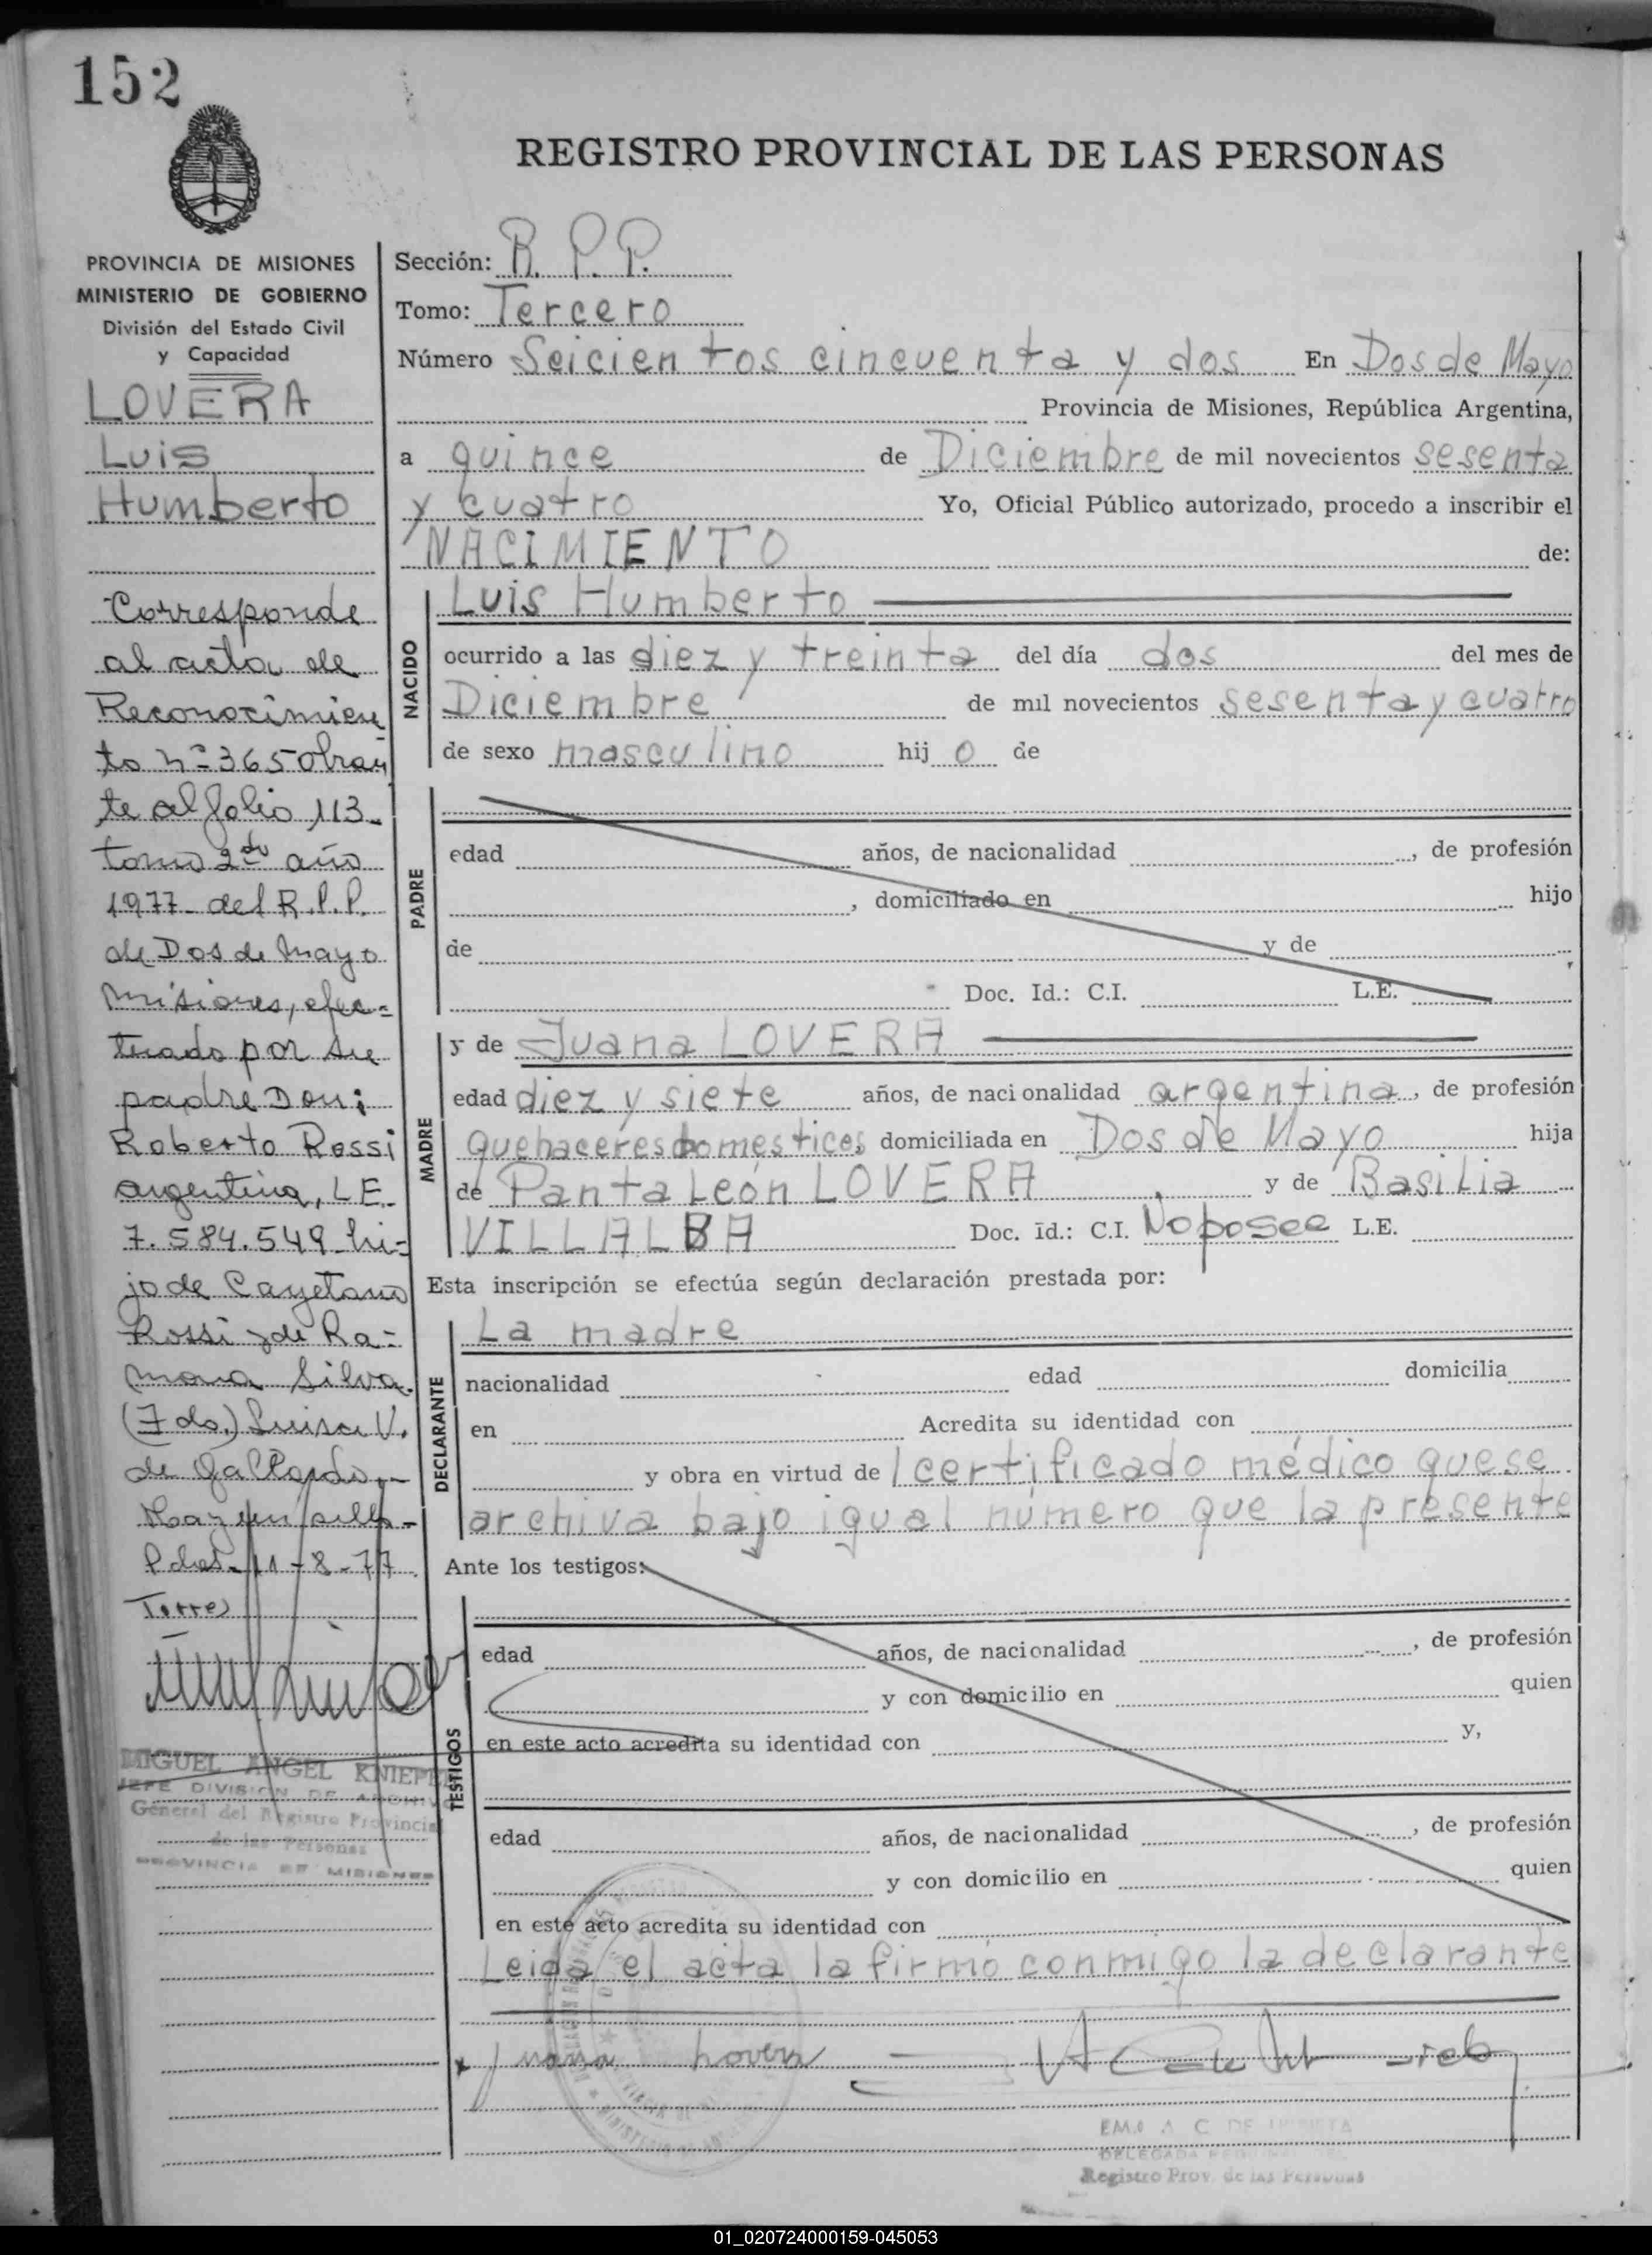 152
REGISTRO PROVINCIAL DE LAS PERSONAS
PROVINCIA DE MISIONES
MINISTERIO DE GOBIERNO
División del Estado Civil
y Capacidad
LOVERA
Luis
Humberto
Corresponde
al acta de
Reconocimien
to nº 365 obran
te al folio 113-
tomo 2do año
1977 del R.P.P.
de Dos de Mayo
Misiones, efec=
tuado por su
padre Don:
Roberto Rossi
argentino, L.E.
7.584.549 hi-
jo de Cayetano
Rossi y de Ra=
mona Silva.
(Fdo.) Luisa V.
de Gallardo
Hay un sello-
Pdas- 11-8-77
Torres
MIGUEL ANGEL KNIEP
JEFE DIVISION DE ARCHIVO
General del Registro Provincial
de las Personas
PROVINCIA DE MISIONES
Sección: R. P. P.
Tomo: Tercero
Número Seicientos cincuenta y dos En Dos de Mayo
Provincia de Misiones, República Argentina,
a quince de Diciembre de mil novecientos sesenta
y cuatro Yo, Oficial Público autorizado, procedo a inscribir el
NACIMIENTO de:
NACIDO
Luis Humberto
ocurrido a las diez y treinta del día dos del mes de
Diciembre de mil novecientos sesenta y cuatro
de sexo masculino hijo de
PADRE
edad años, de nacionalidad , de profesión
, domiciliado en hijo
de y de
Doc. Id.: C.I. L.E.
MADRE
y de Juana LOVERA
edad diez y siete años, de nacionalidad argentina, de profesión
quehaceres domésticos domiciliada en Dos de Mayo hija
de Pantaleón LOVERA y de Basilia
VILLALBA Doc. Id.: C.I. No posee L.E.
Esta inscripción se efectúa según declaración prestada por:
DECLARANTE
La madre
nacionalidad edad domicilia
en Acredita su identidad con
y obra en virtud de certificado médico que se
archiva bajo igual número que la presente
Ante los testigos:
TESTIGOS
edad años, de nacionalidad , de profesión
y con domicilio en quien
en este acto acredita su identidad con y,
edad años, de nacionalidad , de profesión
y con domicilio en quien
en este acto acredita su identidad con
Leida el acta la firmó conmigo la declarante
x Juana Lovera
DELEGADA
Registro Prov. de las Personas
01_020724000159-045053